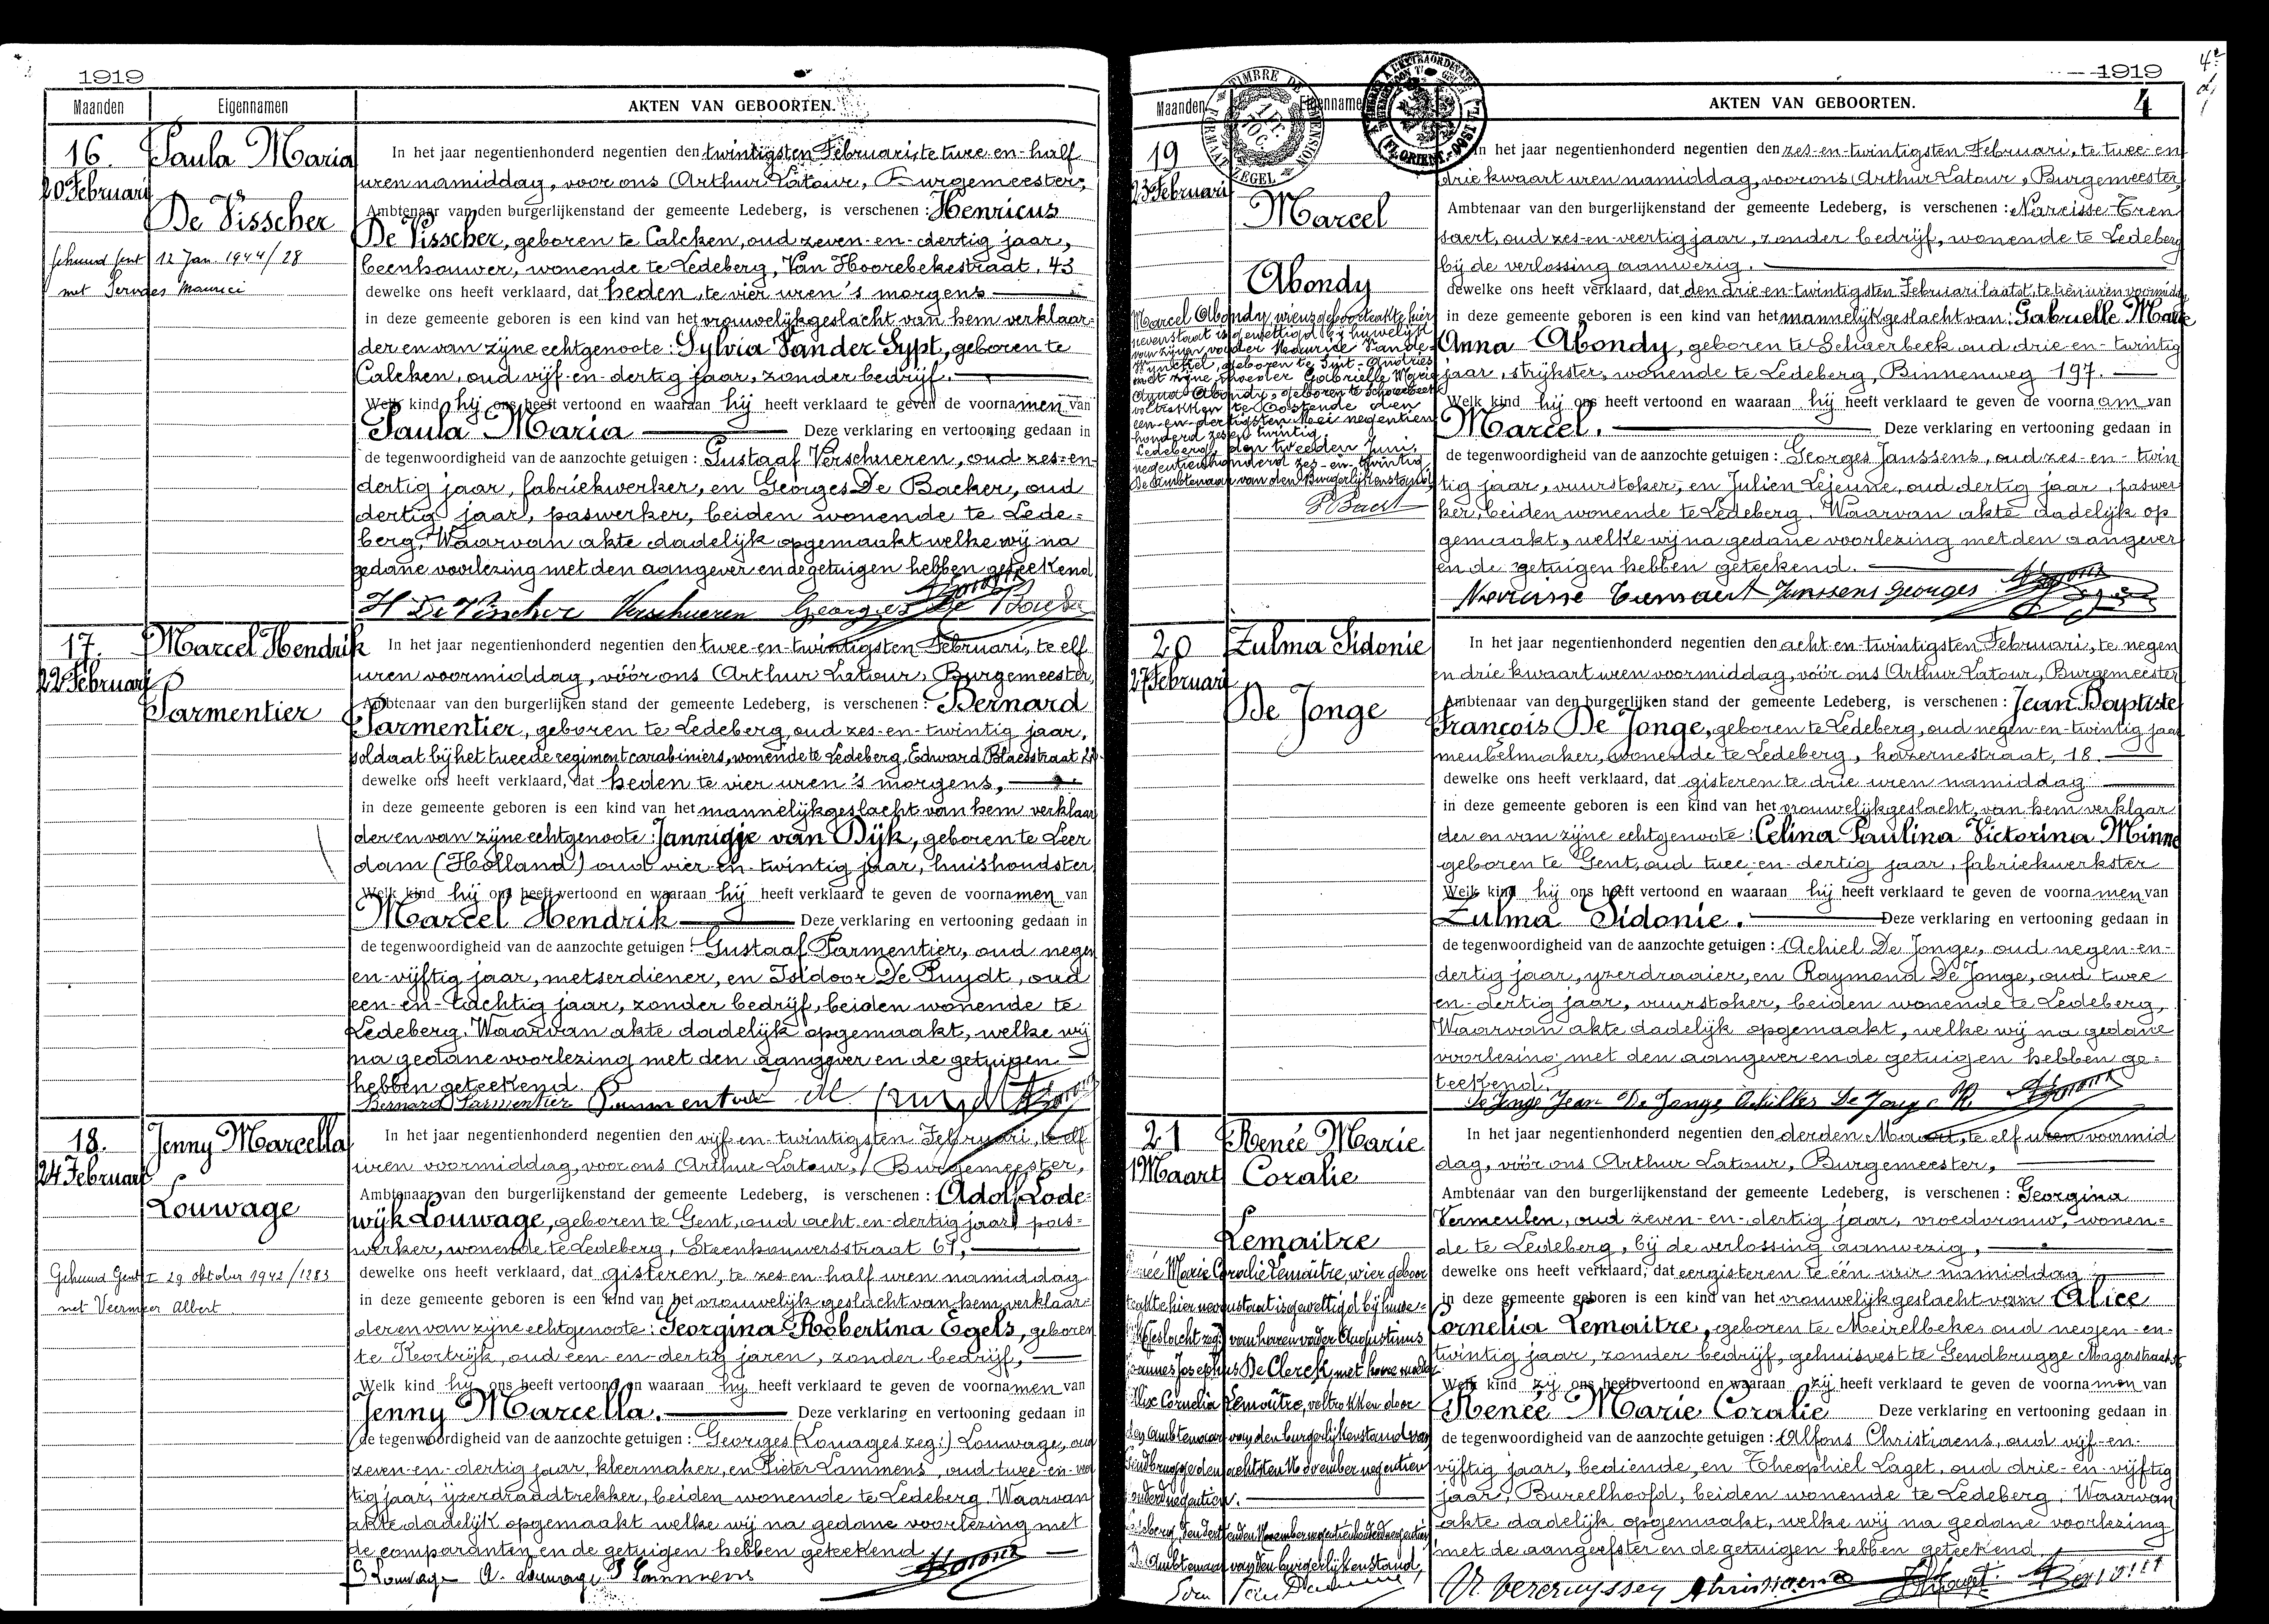 1919
Maanden Eigennamen AKTEN VAN GEBOORTEN.
16. Paula Maria
20 Februari
De Visscher
gehuwd Gent 12 Jan. 1944/28
met Servaes Maurici
In het jaar negentienhonderd negentien den twintigsten Februari, te twee-en-half
uren namiddag, voor ons Arthur Latour, Burgemeester,
Ambtenaar van den burgerlijkenstand der gemeente Ledeberg, is verschenen: Henricus
De Visscher, geboren te Calcken, oud zeven-en-dertig jaar,
beenhouwer, wonende te Ledeberg, Van Hoorebekestraat, 43
dewelke ons heeft verklaard, dat heden, te vier uren 's morgens
in deze gemeente geboren is een kind van het vrouwelijk geslacht van hem verklaar-
der en van zijne echtgenoote: Sylvia Van der Sypt, geboren te
Calcken, oud vijf-en-dertig jaar, zonder bedrijf.
Welk kind hij ons heeft vertoond en waaraan hij heeft verklaard te geven de voornamen van
Paula Maria Deze verklaring en vertooning gedaan in
de tegenwoordigheid van de aanzochte getuigen: Gustaaf Verschueren, oud zes-en-
dertig jaar, fabriekwerker, en Georges De Backer, oud
dertig jaar, paswerker, beiden wonende te Lede=
berg. Waarvan akte dadelijk opgemaakt welke wij na
gedane voorlezing met den aangever en de getuigen hebben geteekend
H De Visscher Verschueren Georges De Backer
17. Marcel Hendrik
22 Februari
Parmentier
In het jaar negentienhonderd negentien den twee-en-twintigsten Februari, te elf
uren voormiddag, vóór ons Arthur Latour, Burgemeester,
Ambtenaar van den burgerlijken stand der gemeente Ledeberg, is verschenen: Bernard
Parmentier, geboren te Ledeberg, oud zes-en-twintig jaar,
soldaat bij het tweede regiment carabiniers, wonende te Ledeberg, Edward Blaesstraat
dewelke ons heeft verklaard, dat heden te vier uren 's morgens,
in deze gemeente geboren is een kind van het mannelijk geslacht van hem verklaar
der en van zijne echtgenoote: Jannigje van Dijk, geboren te Leer
dam (Holland) oud vier-en-twintig jaar, huishoudster
Welk kind hij ons heeft vertoond en waaraan hij heeft verklaard te geven de voornamen van
Marcel Hendrik Deze verklaring en vertooning gedaan in
de tegenwoordigheid van de aanzochte getuigen: Gustaaf Parmentier, oud negen
en-vijftig jaar, metserdiener, en Isidoor De Puydt, oud
een-en-tachtig jaar, zonder bedrijf, beiden wonende te
Ledeberg. Waarvan akte dadelijk opgemaakt, welke wij
na gedane voorlezing met den aangever en de getuigen
hebben geteekend.
Bernard Parmentier Parmentier
18. Jenny Marcella
24 Februari
Louwage
Gehuwd Gent I 29 oktober 1942/1283
met Veermeer Albert
In het jaar negentienhonderd negentien den vijf-en-twintigsten Februari, te elf
uren voormiddag, voor ons Arthur Latour, Burgemeester,
Ambtenaar van den burgerlijkenstand der gemeente Ledeberg, is verschenen: Adolf Lode-
wijk Louwage, geboren te Gent, oud acht-en-dertig jaar, pas=
werker, wonende te Ledeberg, Steenhouwersstraat 67,
dewelke ons heeft verklaard, dat gisteren, te zes en-half uren namiddag
in deze gemeente geboren is een kind van het vrouwelijk geslacht van hem verklaar-
der en van zijne echtgenoote: Georgina Robertina Egels, geboren
te Kortrijk, oud een-en-dertig jaren, zonder bedrijf,
Welk kind hij ons heeft vertoond en waaraan hij heeft verklaard te geven de voornamen van
Jenny Marcella. Deze verklaring en vertooning gedaan in
de tegenwoordigheid van de aanzochte getuigen: Georges (Louages zeg:) Louwage, oud
zeven-en-dertig jaar, kleermaker, en Pieter Lammens, oud twee-en-veer
tig jaar, ijzerdraadtrekker, beiden wonende te Ledeberg. Waarvan
akte dadelijk opgemaakt welke wij na gedane voorlezing met
de comparanten en de getuigen hebben geteekend
G Louwage A. Louwage P Lammens
1919
4
Maanden Eigennamen AKTEN VAN GEBOORTEN.
TIMBRE DE DIMENSION
1 Fr. 10 C.
FORMAAT ZEGEL
(FL. ORIENT.-OOST VL.)
19
23 Februari
Marcel
Abondy
Marcel Abondy, wiens geboorteakte hier
nevenstaat is gewettigd bij huwelijk
van zijnen vader Maurice Vande
geboren te Sint-Andries
met zijne moeder Gabrielle Marie
Anna Abondy, geboren te Schaerbeek
voltrokken te Oostende den
een-en-dertigsten Mei negentien
honderd zes en twintig.
Ledeberg, den tweeden Juni,
negentienhonderd zes-en-twintig
De Ambtenaar van den Burgerlijkenstand,
In het jaar negentienhonderd negentien den zes-en-twintigsten Februari, te twee-en
drie kwaart uren namiddag, voor ons Arthur Latour, Burgemeester,
Ambtenaar van den burgerlijkenstand der gemeente Ledeberg, is verschenen: Narcisse Cren
saert, oud zes-en-veertig jaar, zonder bedrijf, wonende te Ledeberg
bij de verlossing aanwezig.
dewelke ons heeft verklaard, dat den drie-en-twintigsten Februari laatst, te tien uren voormiddag
in deze gemeente geboren is een kind van het mannelijk geslacht van: Gabrielle Marie
Anna Abondy, geboren te Schaerbeek oud drie-en-twintig
jaar, strijkster, wonende te Ledeberg, Binnenweg 197.
Welk kind hij ons heeft vertoond en waaraan hij heeft verklaard te geven de voornaam van
Marcel. Deze verklaring en vertooning gedaan in
de tegenwoordigheid van de aanzochte getuigen: Georges Janssens, oud zes-en-twin
tig jaar, vuurstoker, en Julien Lejeune, oud dertig jaar, paswer
ker, beiden wonende te Ledeberg. Waarvan akte dadelijk op
gemaakt, welke wij na gedane voorlezing met den aangever
en de getuigen hebben geteekend.
Janssens Georges
20 Zulma Sidonie
27 Februari
De Jonge
In het jaar negentienhonderd negentien den acht-en-twintigsten Februari, te negen
en drie kwaart uren voormiddag, vóór ons Arthur Latour, Burgemeester
Ambtenaar van den burgerlijken stand der gemeente Ledeberg, is verschenen: Jean Baptiste
François De Jonge, geboren te Ledeberg, oud negen-en-twintig jaar
meubelmaker, wonende te Ledeberg, kazernestraat, 18.
dewelke ons heeft verklaard, dat gisteren te drie uren namiddag
in deze gemeente geboren is een kind van het vrouwelijk geslacht, van hem verklaar
der en van zijne echtgenoote: Celina Paulina Victorina Minne
geboren te Gent, oud twee-en-dertig jaar, fabriekwerkster
Welk kind hij ons heeft vertoond en waaraan hij heeft verklaard te geven de voornamen van
Zulma Sidonie. Deze verklaring en vertooning gedaan in
de tegenwoordigheid van de aanzochte getuigen: Achiel De Jonge, oud negen-en-
dertig jaar, yzerdraaier, en Raymond De Jonge, oud twee
en-dertig jaar, vuurstoker, beiden wonende te Ledeberg,
Waarvan akte dadelijk opgemaakt, welke wij na gedane
voorlezing met den aangever en de getuigen hebben ge=
teekend.
De Jonge Jean De Jonge Achilles De Jonge R
21 Renée Marie
1 Maart Coralie
Lemaitre
Renée Marie Coralie Lemaitre, wier geboor
teakte hier nevenstaat is gewettigd bij huwe=
van haren vader Augustinus
Joannes Josephus De Clerck, met hare moeder
Alix Cornelia Lemaitre, voltrokken door
den Ambtenaar van den burgerlijkenstand van
Gendbrugge den achtsten November negentien
honderd negentien.
De Ambtenaar van den burgerlijkenstand,
In het jaar negentienhonderd negentien den derden Maart, te elf uren voormid
dag, vóór ons Arthur Latour, Burgemeester,
Ambtenaar van den burgerlijkenstand der gemeente Ledeberg, is verschenen: Georgina
Vermeulen, oud zeven-en-dertig jaar, vroedvrouw, wonen=
de te Ledeberg, bij de verlossing aanwezig,
dewelke ons heeft verklaard, dat eergisteren te één uur namiddag
in deze gemeente geboren is een kind van het vrouwelijk geslacht van Alice
Cornelia Lemaitre, geboren te Meirelbeke, oud negen-en-
twintig jaar, zonder bedrijf, gehuisvest te Gendbrugge Magerstraat
Welk kind zij ons heeft vertoond en waaraan zij heeft verklaard te geven de voornamen van
Renée Marie Coralie Deze verklaring en vertooning gedaan in
de tegenwoordigheid van de aanzochte getuigen: Alfons Christiaens, oud vijf-en-
vijftig jaar, bediende, en Theophiel Laget, oud drie-en-vijftig
jaar, Bureelhoofd, beiden wonende te Ledeberg. Waarvan
akte dadelijk opgemaakt, welke wij na gedane voorlezing
met de aangeefster en de getuigen hebben geteekend.
Christiaens